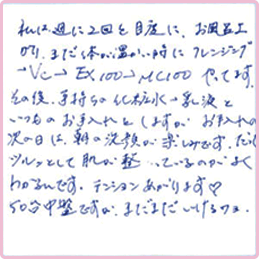 私は週に2回を目度に、お風呂上
がり、まだ体が温かい時にクレンジング
→VC→EX100→MC100 やってます。
その後、手持ちの化粧水→乳液と
いつものお手入れとしますが お手入れの
次の日は、朝の洗顔が楽しみです。
ツルッとして肌が整っているのがよく
わかるんです。テンションあがります♡
50台中盤ですが まだまだいけるワヨ。